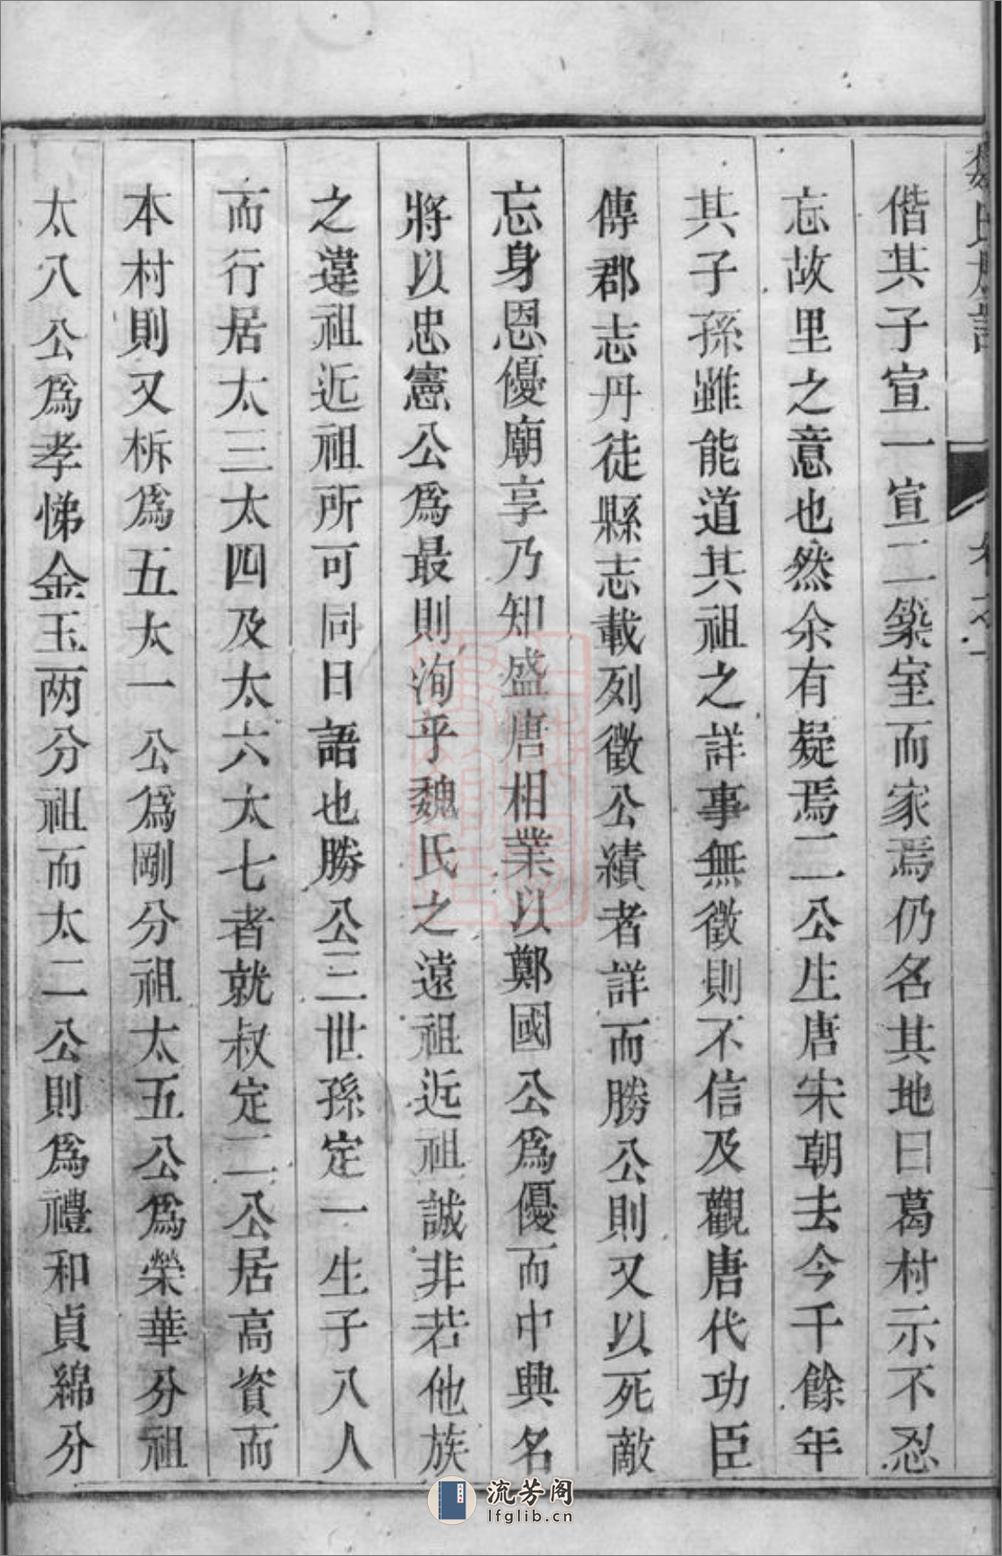 偕其子宣一宣二築室而家焉仍名其地曰葛村示不忍
忘故里之意也然余有疑焉二公生唐宋朝去今千餘年
其子孫雖能道其祖之詳事無徵則不信及觀唐代功臣
傳郡志丹徒縣志載列徵公績者詳而勝公則又以死敵
忘身恩優廟享乃知盛唐相業以鄭國公為優而中興名
將以忠憲公為最則洵乎魏氏之遠祖近祖誠非若他族
之違祖近祖所可同日語也勝公三世孫定一生子八人
而行居太三太四及太六太七者就叔定二公居高資而
本村則又柝為五太一公為剛分祖太五公為榮華分祖
太八公為孝悌金玉两分祖而太二公則為禮和貞綿分
流芳阁
lfglib.cn